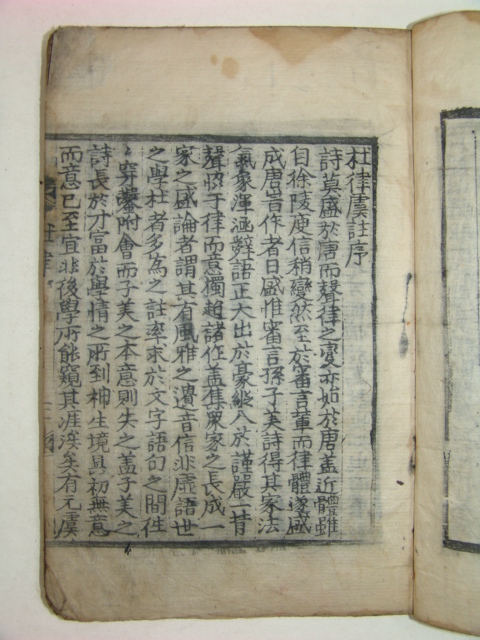 杜律虞註序
詩莫盛於唐而聲律之變亦始於唐盖近體雖
自徐陵庾信稍變然至於審言軰而律體遂盛
成唐旹作者日盛惟審言孫子美詩得其家法
氣象渾涵辭語正大出於豪縱入於謹嚴一皆
聲恊于律而意獨超諸作盖集衆家之長成一
家之盛論者謂其有風雅之遺音信非虗語世
之學杜者多為之註率求於文字語句之間徃
〻穿鑿附會而子美之本意則失之盖子美之
詩長於才富於學情之所到神生境具初無意
而意已至宜非後學所能窺其涯涘矣有元虞
杜律序